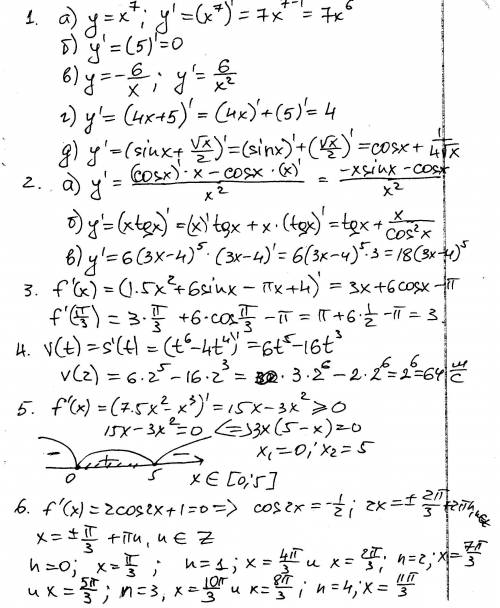 1. а) y = x⁷; y' = (x⁷)' = 7x⁷⁻¹ = 7x⁶
б) y' = (5)' = 0
в) y = -6/x; y' = 6/x²
г) y' = (4x+5)' = (4x)' + (5)' = 4
д) y' = (sinx + √x/2)' = (sinx)' + (√x/2)' = cosx + 1/4√x
2. а) y' = (cosx)'·x - cosx·(x)'/x² = -xsinx - cosx/x²
б) y' = (xtgx)' = (x)'tgx + x·(tgx)' = tgx + x/cos²x
в) y' = 6(3x-4)⁵·(3x-4)' = 6(3x-4)⁵·3 = 18(3x-4)⁵
3. f'(x) = (1.5x² + 6sinx - πx + 4)' = 3x + 6cosx - π
f'(π/3) = 3·π/3 + 6·cosπ/3 - π = π + 6·1/2 - π = 3
4. v(t) = s'(t) = (t⁶ - 4t⁴)' = 6t⁵ - 16t³
v(2) = 6·2⁵ - 16·2³ = 3·2⁶ - 2·2⁶ = 2⁶ = 64 м/с
5. f'(x) = (7.5x² - x³)' = 15x - 3x² ≥ 0
15x - 3x² = 0 <=> 3x(5-x) = 0
- + - x₁ = 0; x₂ = 5
0 5 x ∈ [0; 5]
6. f'(x) = 2cos2x + 1 = 0 => cos2x = -1/2; 2x = ± 2π/3 + 2πn, n∈Z
x = ± π/3 + πn, n ∈ Z
n=0; x = π/3; n=1; x = 4π/3 и x = 2π/3; n=2; x = 7π/3
и x = 5π/3; n=3, x = 10π/3 и x = 8π/3; n=4; x = 11π/3